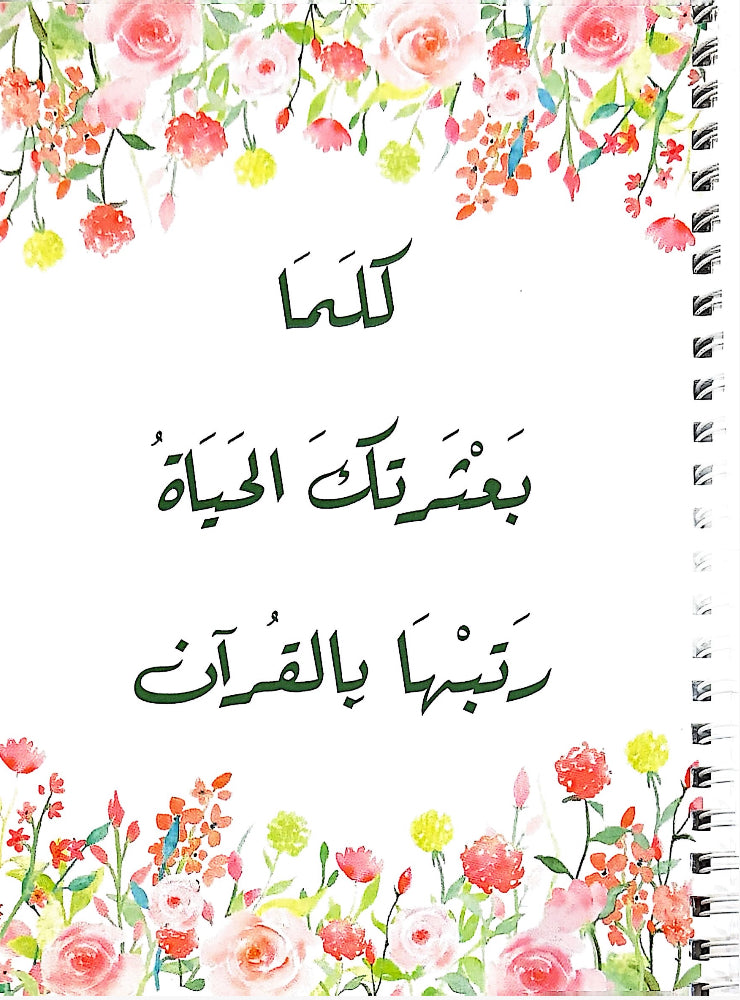 كلَمَا
بَعْثَرتكَ الحَيَاةُ
رَتبْهَا بِالقُرآن